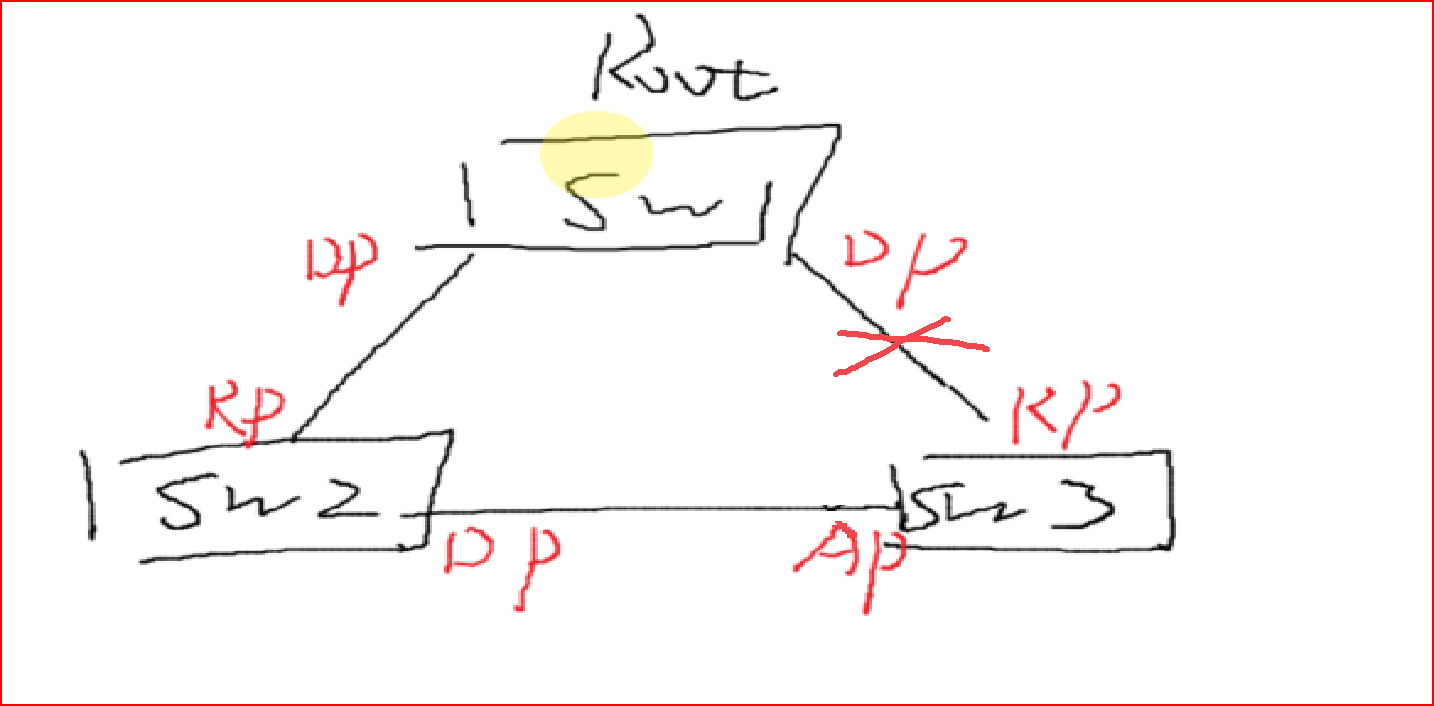 Root
SW1
DP
DP
RP
RP
SW2
SW3
DP
AP